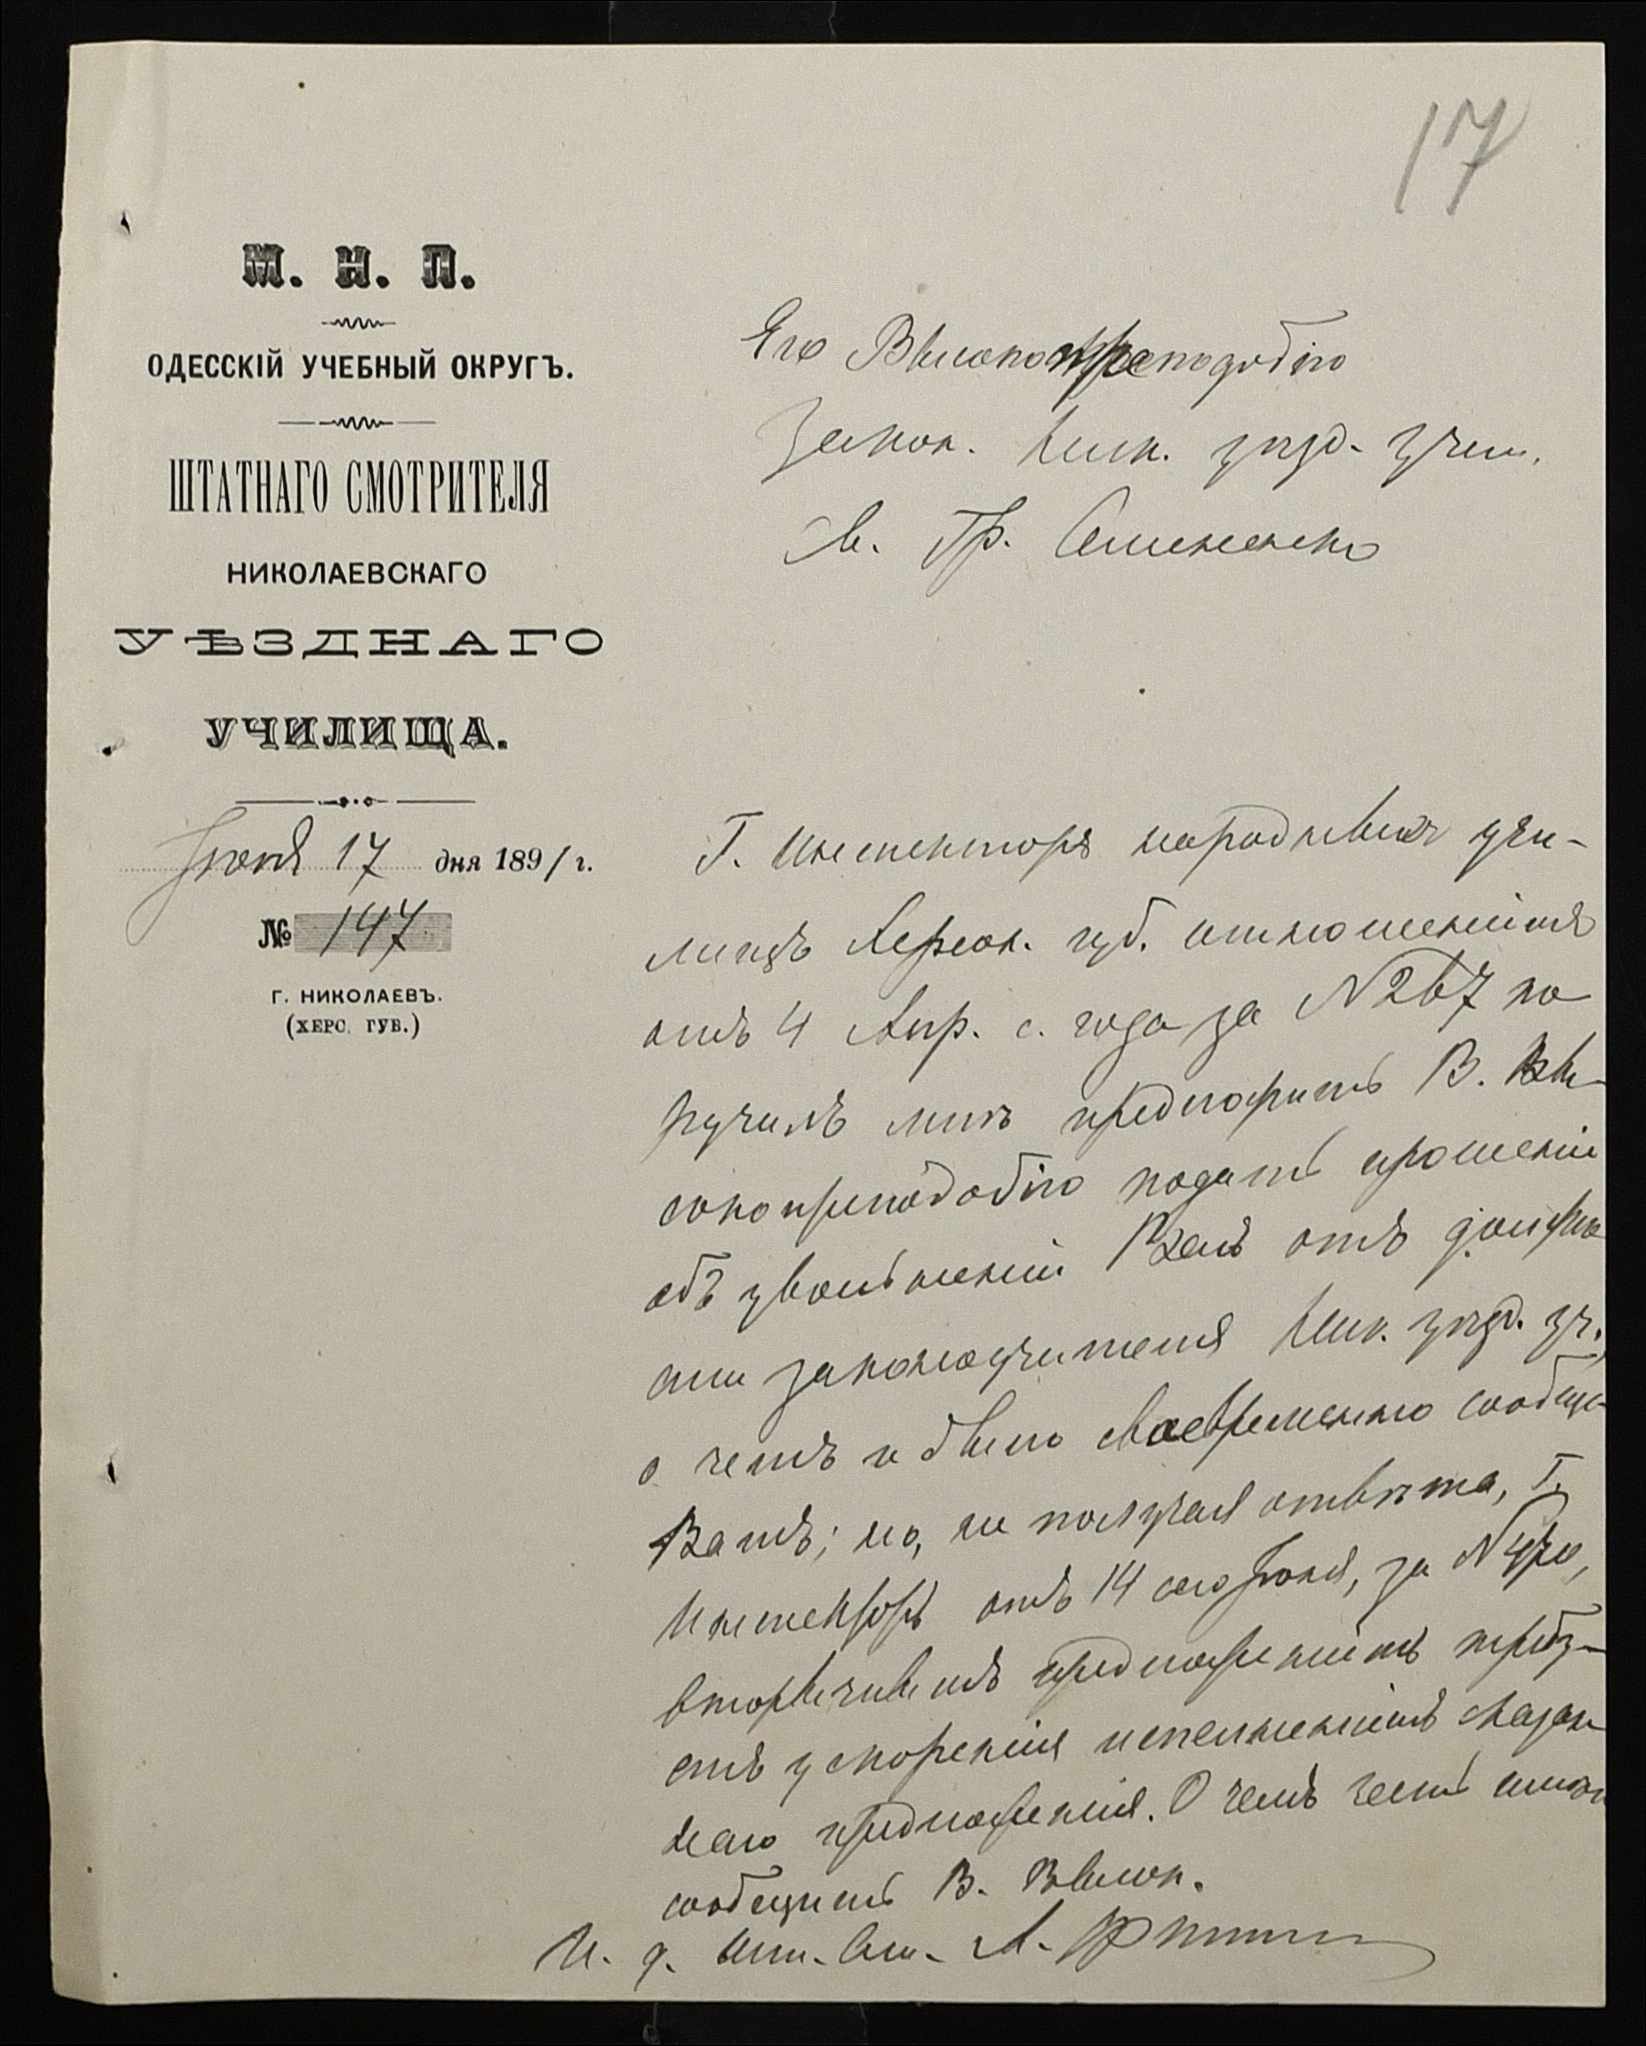 17
М. Н. П.
ОДЕССКІЙ УЧЕБНЫЙ ОКРУГЪ.
ШТАТНАГО СМОТРИТЕЛЯ
НИКОЛАЕВСКАГО
УѢЗДНАГО
УЧИЛИЩА.
Іюня 17 дня 1891 г.
№ 147
Г. НИКОЛАЕВЪ.
(ХЕРС. ГУБ.)
Его Высокопреподобію
Закон. Ник. уѣзд. учил.
Гр.
Г. Инспекторъ народныхъ учи-
лищъ Херсон. губ. отношеніемъ
отъ 4 Апр. с. года за N 267 по
ручилъ мнѣ предложить В. Вы-
сокопреподобію подать прошеніе
объ увольненіи Васъ отъ должно
сти законоучителя Ник. уѣзд. уч.,
о чемъ и было своевременно сообще-
Вамъ; но, не получая отвѣта, Г.
Инспекторъ отъ 14 сего Іюня, за N
вторичнымъ предложеніемъ требу-
етъ ускоренія исполненіемъ сказан
наго предложенія. О чемъ честь имѣю
сообщить В. Высок.
И. д. Шт. См. А.